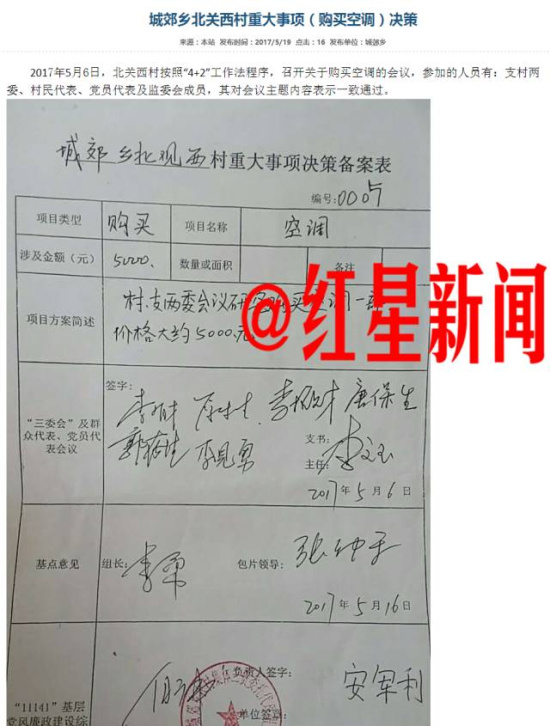 城郊乡北关西村重大事项（购买空调）决策
来源：本站 发布时间：2017/5/19 点击：16 发布单位：城郊乡
2017年5月6日，北关西村按照“4+2”工作法程序，召开关于购买空调的会议，参加的人员有：支村两
委、村民代表、党员代表及监委会成员，其对会议主题内容表示一致通过。
城郊乡北观西村重大事项决策备案表
编号：0005
项目类型 购买 项目名称 空调
涉及金额（元） 5000. 数量或面积 备注
项目方案简述
村支两委会议研究购买空调一部
价格大约5000.元
@红星新闻
“三委会”及群
众代表、党员代
表会议
签字：
唐保生
李见勇
支书：
主任：
2017年5月6日
基点意见 组长： 包片领导：
2017年5月16日
“11141”基层
党风廉政建设综
负责人签字：
安军利
单位签章